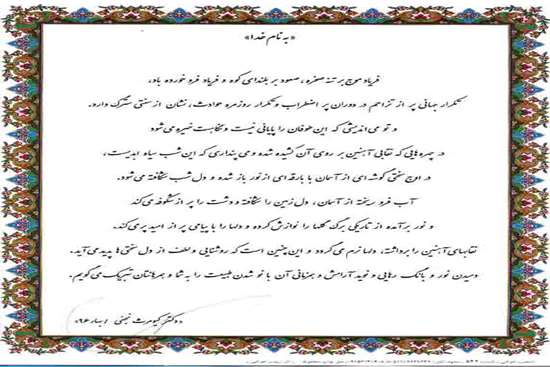 «به نام خدا»
فریاد موج بر تنه صخره، صعود بر بلندای کوه و فریاد فرو خورده باد،
تکرار جهانی پر از تزاحم در دوران پر اضطراب و تکرار روزمره حوادث، نشان از سنتی سترگ دارد.
و تو می اندیشی که این طوفان را پایانی نیست و نگاهت خیره می‌شود
در چهره‌هایی که نقابی آهنین بر روی آن کشیده شده و می پنداری که این شب سیاه ابدیست،
در اوج سختی گوشه ای از آسمان با بارقه ای از نور باز شده و دل شب شکافته می‌شود.
آب فرو ریخته از آسمان، دل زمین را شکافته و دشت را پر از شکوفه می‌کند
و نور برآمده از تاریکی برگ گلها را نوازش کرده و دلها را با پیامی پر از امید پر می‌کند.
نقابهای آهنین را برداشته، دلها نرم می‌گردد و این چنین است که روشنایی و لطف از دل سختی‌ها پدید می‌آید.
دمیدن نور و بانگ رهایی و نوید آرامش و همزبانی آن با نو شدن طبیعت را به شما و همرهانتان تبریک می‌گویم.
دکتر کیومرث / بهار ۹۶